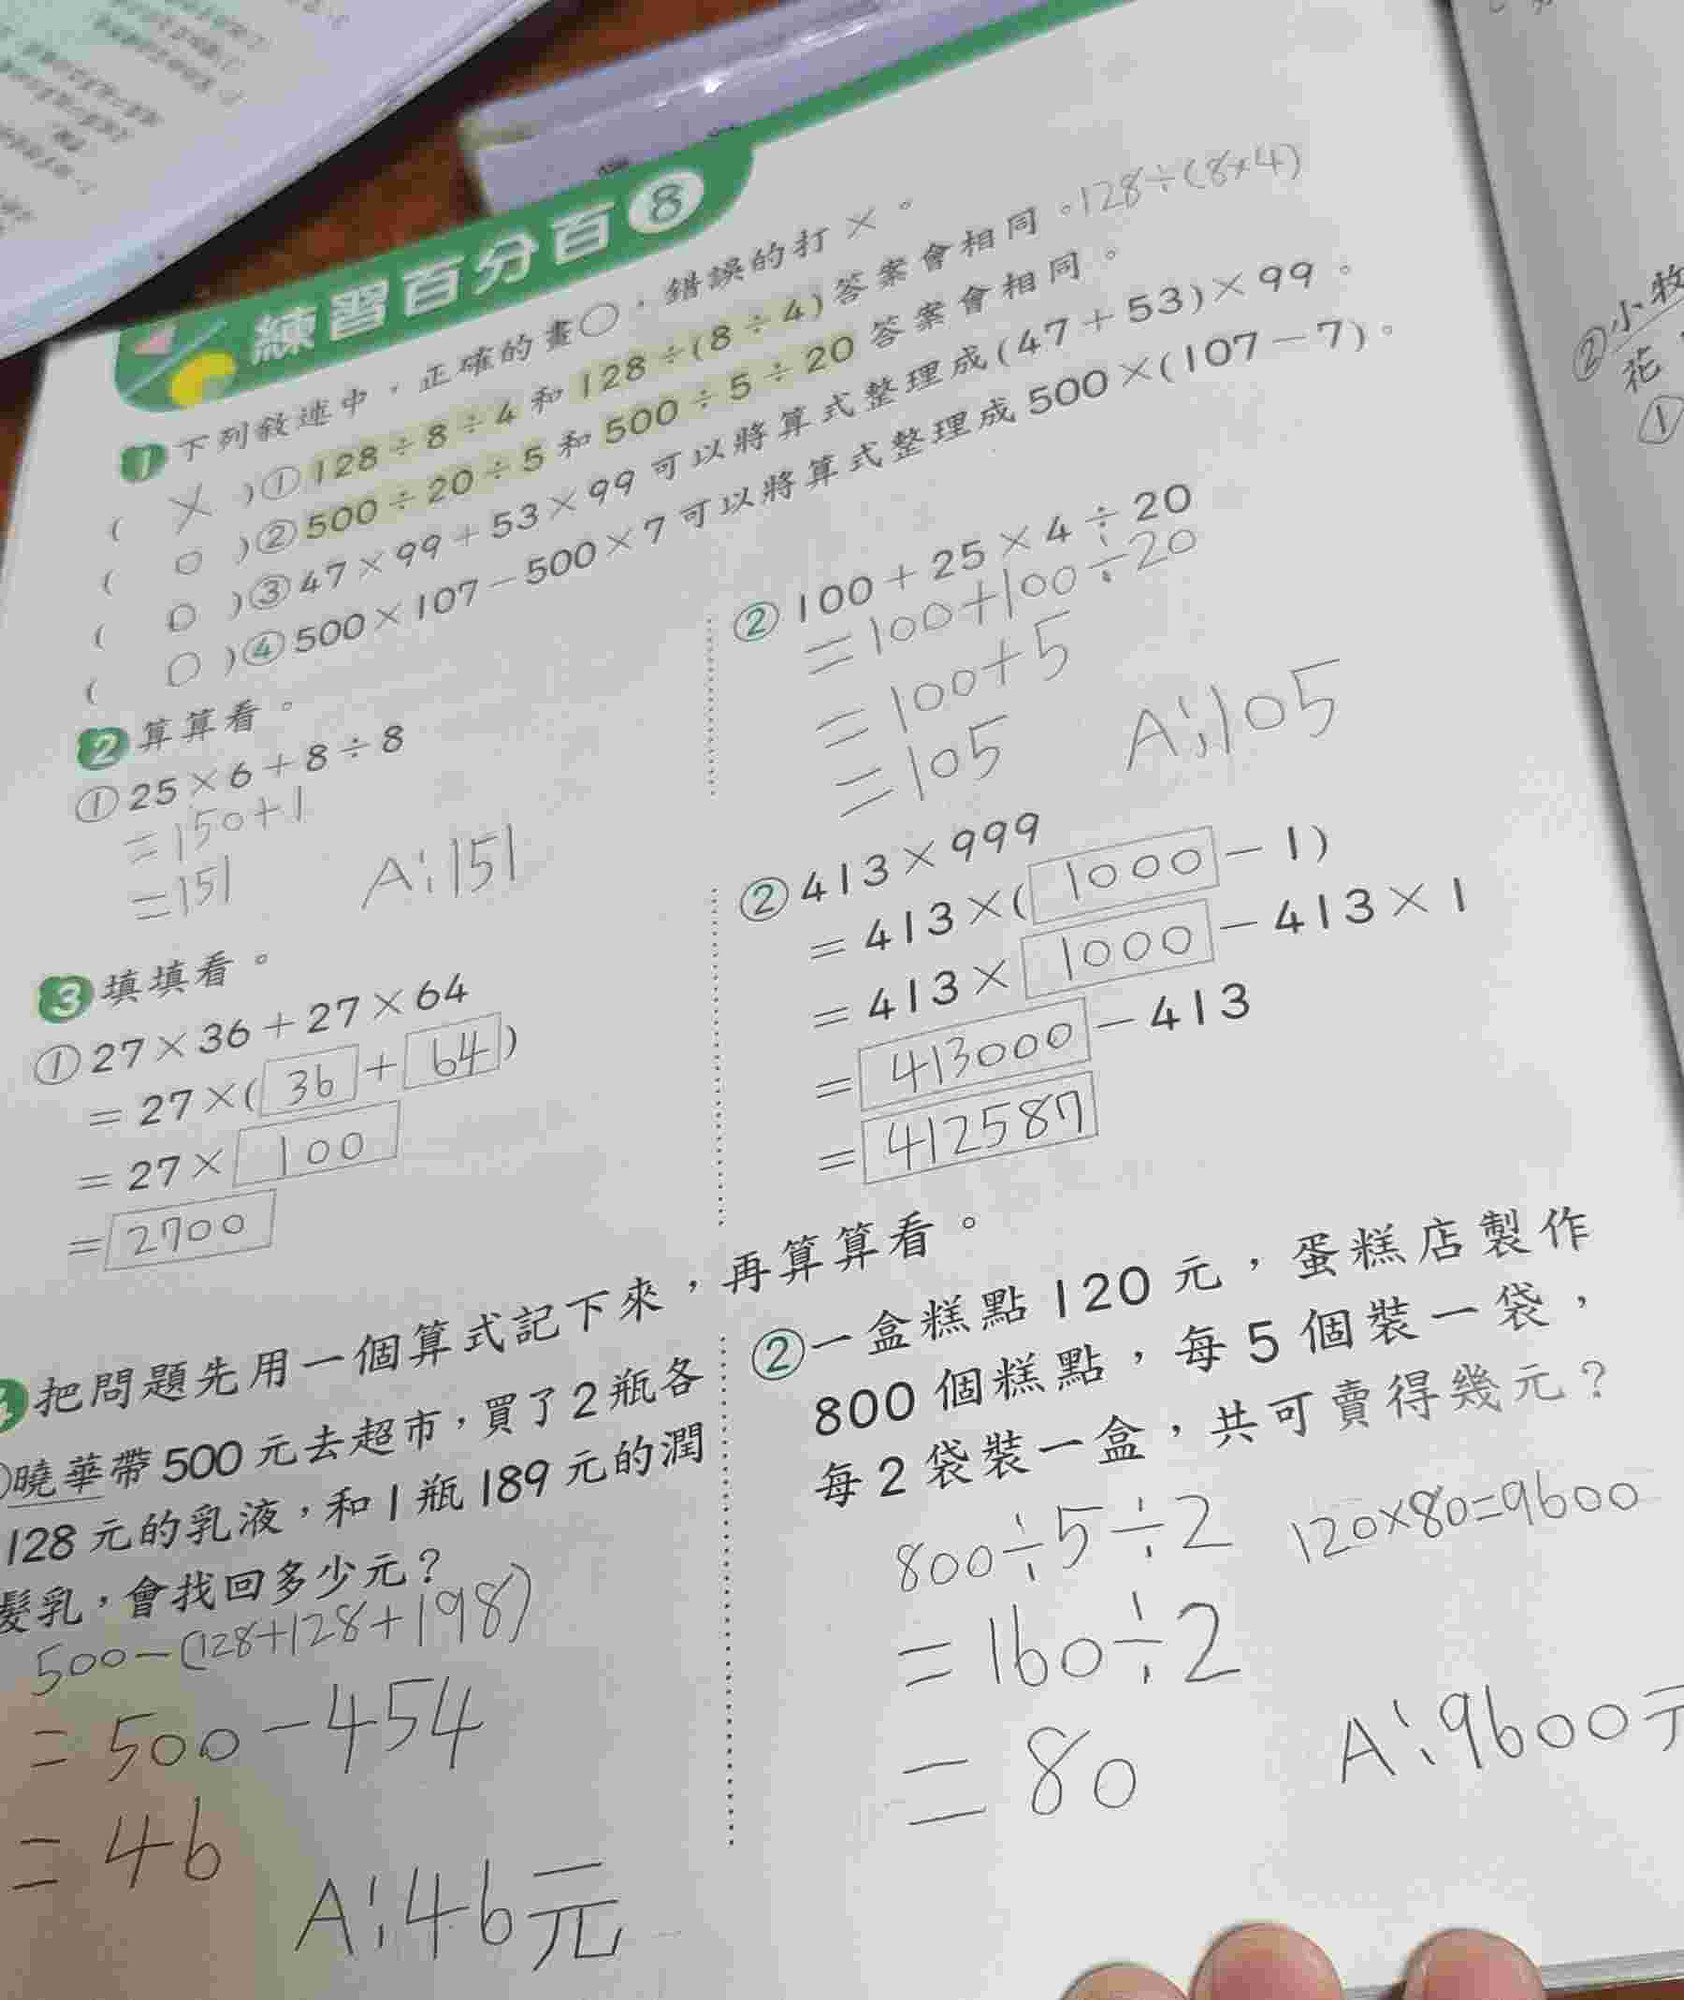 練習百分百8
1 下列敘述中，正確的畫○，錯誤的打×。
( X )①128÷8÷4和128÷(8÷4)答案會相同。128÷(8×4)
( O )②500÷20÷5和500÷5÷20答案會相同。
( O )③47×99+53×99可以將算式整理成(47+53)×99。
( O )④500×107−500×7可以將算式整理成500×(107−7)。
2 算算看。
①25×6+8÷8
=150+1
=151 A:151
②100+25×4÷20
=100+100÷20
=100+5
=105 A:105
3 填填看。
①27×36+27×64
=27×(36+64)
=27×100
=2700
②413×999
=413×(1000−1)
=413×1000−413×1
=413000−413
=412587
把問題先用一個算式記下來，再算算看。
曉華帶500元去超市，買了2瓶各
128元的乳液，和1瓶189元的潤
髮乳，會找回多少元？
500−(128+128+198)
=500−454
=46
A:46元
②一盒糕點120元，蛋糕店製作
800個糕點，每5個裝一袋，
每2袋裝一盒，共可賣得幾元？
800÷5÷2 120×80=9600
=160÷2
=80 A:9600元
②小牧
花
①